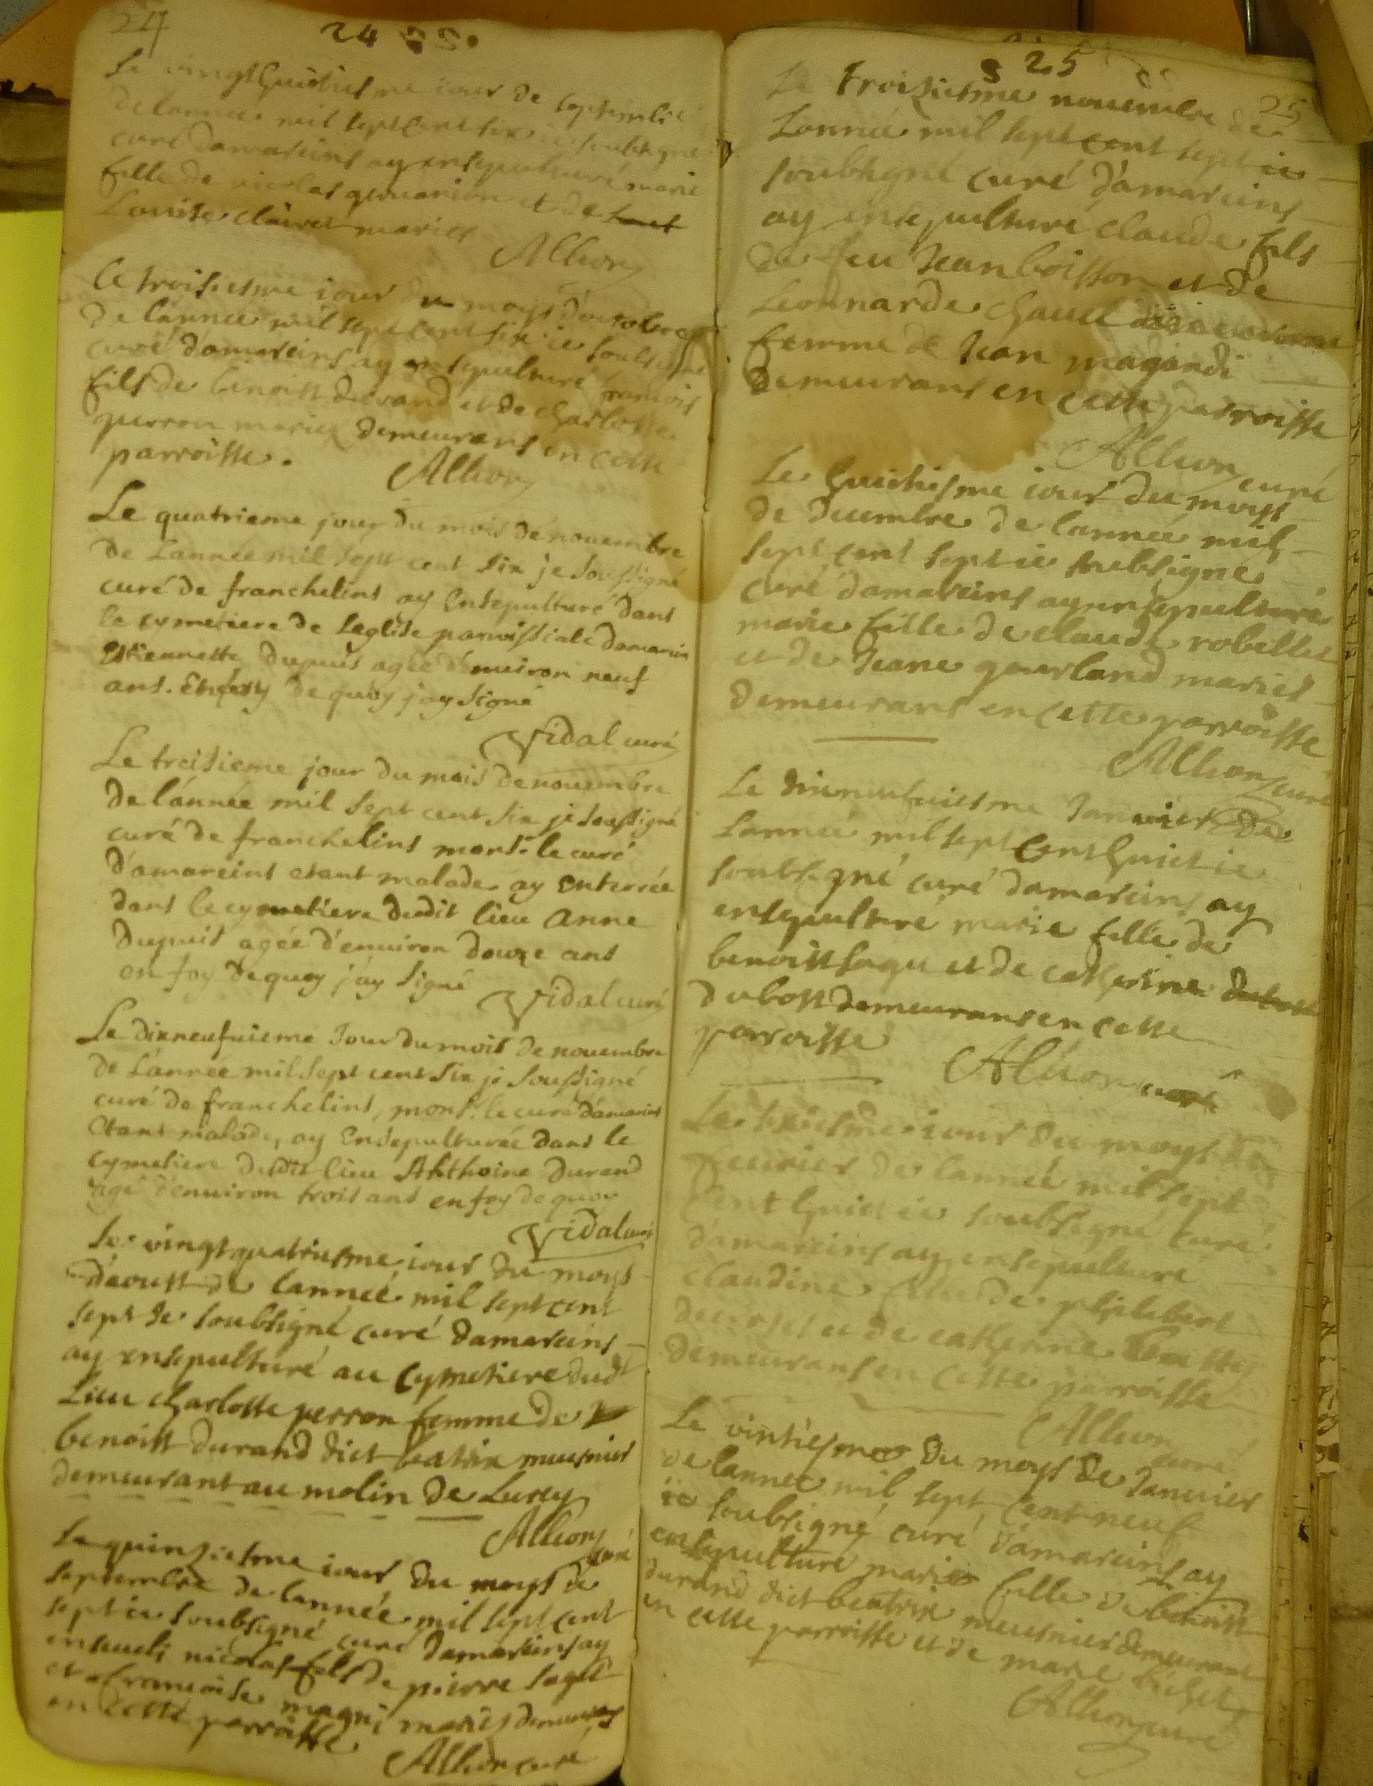 24
24
Le vingt huitiesme iour de septembre
de lannee mil sept cent six ie soubsigné
curé damareins ay ensepulturé marie
fille de nicolas et de
Louise clairet mariés
Allion
Le troisiesme iour du moys d'octobre
de l'année mil sept cent six ie soubsigné
curé damareins ay ensepulturé francois
fils de benoist durand et de charlotte
perron mariez demeurans en cette
parroisse.
Allion
Le quatrieme jour du mois de nouembre
de L'année mil sept cent six je soussigné
curé de franchelins ay Ensepulturé dans
le cymetiere de Leglise parroissiale damareins
Estiennette Dupuis agée d'enuiron neuf
ans. En foy de quoy j'ay signé
Vidal curé
Le treisieme jour du mois de nouembre
de l'année mil sept cent six je soussigné
curé de franchelins monsr. le curé
d'amareins etant malade ay enterrée
dans le cymetiere dudit lieu anne
Dupuis agée d'enuiron douze ans
en foy de quoy j'ay signé
Vidal curé
Le dixneufuieme Jour du mois de nouembre
de L'année mil sept cent six je soussigné
curé de franchelins, monsr. le curé d'amareins
etant malade, ay Ensepulturée dans le
cymetiere dudit lieu Anthoine Durand
agé d'enuiron trois ans en foy de quoy
Vidal curé
Le vingt quatriesme iour du moys
d'aoust de lannée mil sept cent
sept Je soubsigné curé damareins
ay ensepulturé au cymetiere dudt
Lieu charlotte perron femme de
benoist durand dict beatrix meusnier
demeurant au molin de Lurcy
Allion curé
Le quinziesme iour du moys de
septembre de lannée mil sept cent
sept ie soubsigné curé damareins ay
enseueli nicolas fils de pierre
et francoise magni mariés demeurans
en cette parroisse
Allion curé
25
25
Le Troisiesme nouembre de
Lannée mil sept cent sept ie
soubsigné curé d'amareins
ay ensepulturé claude fils
de feu Jean boisson et de
Leonnarde
femme de Jean magandi
demeurans en cette parroisse
Allion curé
Le huictiesme iour du moys
de decembre de lannée mil
sept cent sept ie soubsigné
curé damareins ay ensepulturé
marie fille de claude robellet
et de Jeane gourland mariés
demeurans en cette parroisse
Allion curé
Le dixneufuiesme Januier de
Lannée mil sept cent huict ie
soubsigné curé damareins ay
ensepulturé marie fille de
benoist et de catherine
dubost demeurans en cette
parroisse
Allion curé
Le sixiesme iour du moys de
feurier de lannée mil sept
cent huict ie soubsigné curé
d'amareins ay ensepulturé
claudine fille de philebert
et de catherine
demeurans en cette parroisse
Allion curé
Le vintiesme du moys de Januier
de lannee mil sept cent neuf
ie soubsigné curé damareins ay
ensepulturé marie fille de benoist
durand dict beatrix meusnier demeurant
en cette parroisse et de marie
Allion curé